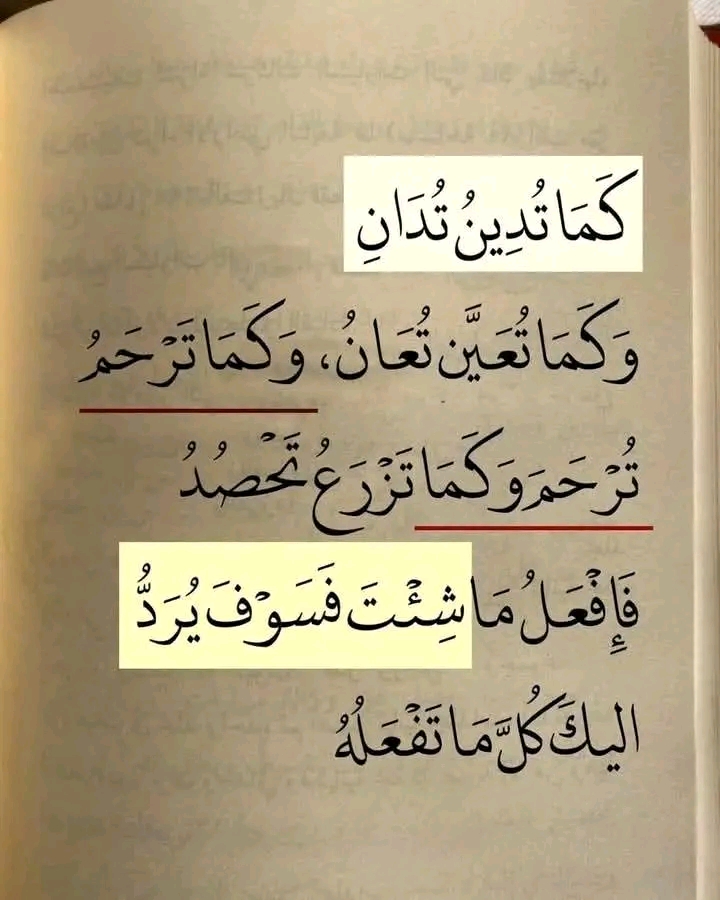 كَمَا تُدِينُ تُدَانِ
وَكَمَا تُعَيَّن تُعَانُ، وَكَمَا تَرْحَمُ
تُرْحَمَ وَكَمَا تَزْرَعُ تَحْصُدُ
فَإِفْعَلُ مَا شِئْتَ فَسَوْفَ يُرَدُّ
اليكَ كُلَّ مَا تَفْعَلُهُ